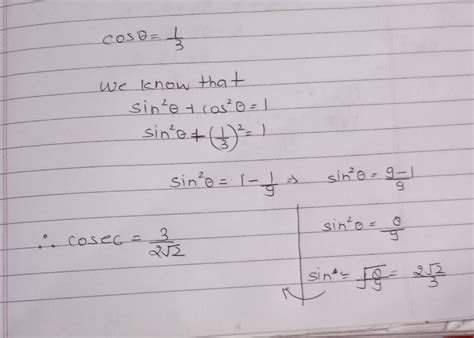 cosθ = 1/3
We know that
sin²θ + cos²θ = 1
sin²θ + (1/3)² = 1
sin²θ = 1 - 1/9 ⇒ sin²θ = 9-1/9
sin²θ = 8/9
sin = √8/9 = 2√2/3
∴ cosec = 3/2√2